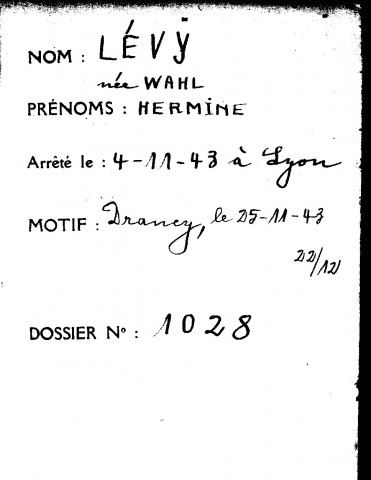 NOM : LÉVY
née WAHL
PRÉNOMS : HERMINE
Arrêté le : 4-11-43 à Lyon
MOTIF : Drancy, le 25-11-43
22/12
DOSSIER N° : 1028